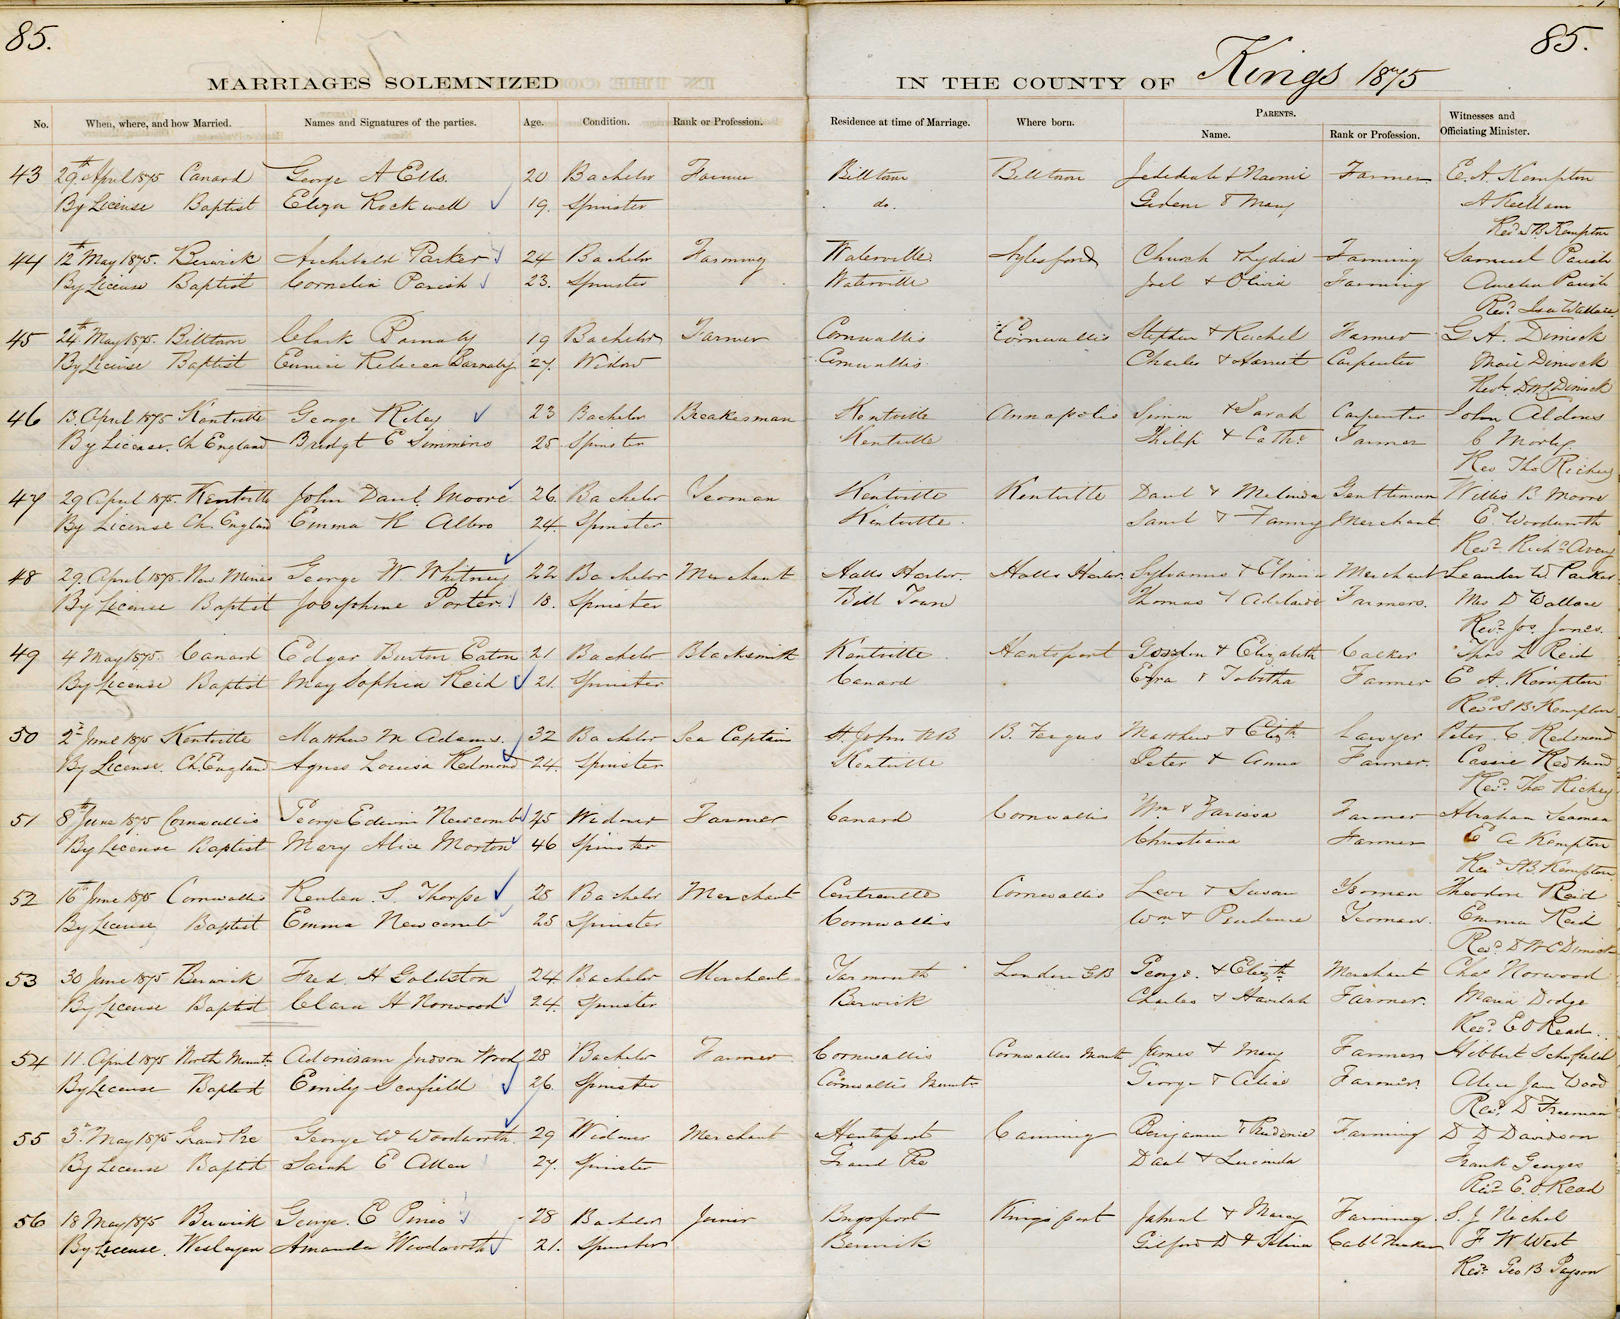 85. 85.
MARRIAGES SOLEMNIZED IN THE COUNTY OF Kings 1875
No. When, where, and how Married. Names and Signatures of the parties. Age. Condition. Rank or Profession. Residence at time of Marriage. Where born. PARENTS. Name. Rank or Profession. Witnesses and Officiating Minister.
43 29th April 1875 Canard George A Ells. 20 Bachelor Farmer Billtown Billtown Jedediah & Naomi Farmer E. A. Kempton
By License Baptist Eliza Rockwell 19. Spinster do. Gideon & Mary A Kellam
Revd S B. Kempton
44 12th May 1875. Berwick Archibald Parker 24 Bachelor Farming Waterville Aylesford Church & Lydia Farming Samuel Parish
By License Baptist Cornelia Parish 23. Spinster Waterville Joel & Olivia Farming Amelia Parish
Revd Isa Wallace
45 24th May 1875. Billtown Clark Barnaby 19 Bachelor Farmer Cornwallis Cornwallis Stephen & Rachel Farmer G A. Dimock
By License Baptist Eunice Rebecca Barnaby 27. Widow Cornwallis Charles & Harriet Carpenter Dimock
Revd D W C Dimock
46 13. April 1875 Kentville George Riley 23 Bachelor Breakesman Kentville Annapolis Simon & Sarah Carpenter John Aldous
By License. Ch England Bridgt E Simmins 25 Spinster Kentville Philip & Cathe Farmer C Morley
Rev Thos Richey
47 29 April 1875. Kentville John Danl. Moore 26. Bachelor Yeoman Kentville Kentville Danl & Melinda Gentleman Willis B Moore
By License Ch. England Emma R Albro 24. Spinster Kentville. Saml & Fanny Merchant E. Woodworth
Revd Richd Avery
48 29. April 1875. New Minas George W Whitney 22 Bachelor Merchant Halls Harbor. Halls Harbor. Sylvanus & Elmira Merchant Leander W. Parker
By License Baptist Josephine Porter. 18. Spinster Bill Town Thomas & Adelaide Farmers. Mrs D Wallace
Revd Jos. Jones.
49 4 May 1875. Canard Edgar Burton Eaton 21 Bachelor Blacksmith Kentville Hantsport & Elizabeth Calker Thos L Reid
By License Baptist May Sophia Reid 21. Spinster Canard Ezra & Tabitha Farmer E A. Kempton
Revd S B. Kempton
50 2d June 1875 Kentville Matthew M Adams. 32 Bachelor Sea Captain St John NB B. Fergus Matthew & Elizth Lawyer Peter. C. Redmond
By License. Ch. England Agnes Louisa Redmond 24. Spinster Kentville Peter & Anna Farmer. Cassie Redmond
Revd. Thos Richey
51 8th June 1875 Cornwallis George Edwin Newcomb 45 Widower Farmer Canard Cornwallis Wm & Farmer Abraham Seaman
By License Baptist Mary Alice Morton 46 Spinster Christiana Farmer E A Kempton
Revd S B. Kempton
52 16th June 1875 Cornwallis Reuben. S. Thorpe 28 Bachelor Merchant Centreville Cornwallis Levi & Susan Yeoman Theodore Reid
By License Baptist Emma Newcomb 25 Spinster Cornwallis Wm & Prudence Yeoman. Emma Reid
Revd D W C Dimock
53 30 June 1875 Berwick Fred. H Goldston 24. Bachelor Merchant Yarmouth London G B George. & Elizth Merchant Chas Norwood
By License Baptist Clara H Norwood 24. Spinster Berwick Charles & Havilah Farmer. Maria Dodge
Revd. E O Read.
54 11. April 1875 North Mountn Adoniram Judson Wood 28 Bachelor Farmer Cornwallis Cornwallis Mountn James & Mary Farmer Hibbert Schofield
By License Baptist Emily Scofield 26. Spinster Cornwallis Mountn George & Alice Farmer. Alice Jane Wood
Revd. D Freeman
55 3d May 1875 Grand Pre George W Woodworth. 29 Widower Merchant Hantsport Canning Benjamin & Prudence Farming D D Davidson
By License Baptist Sarah E Allen 27. Spinster Grand Pre Danl & Lucinda Frank Georges
Revd E. O. Read
56 18 May 1875 Berwick George. E Pineo 28 Bachelor Joiner Kingsport & Mary Farming. S. J. Nichol
By License. Wesleyan Amanda Woodworth 21. Spinster Berwick Gilford D & Selina Cabt Maker F W West
Revd Geo B Payson